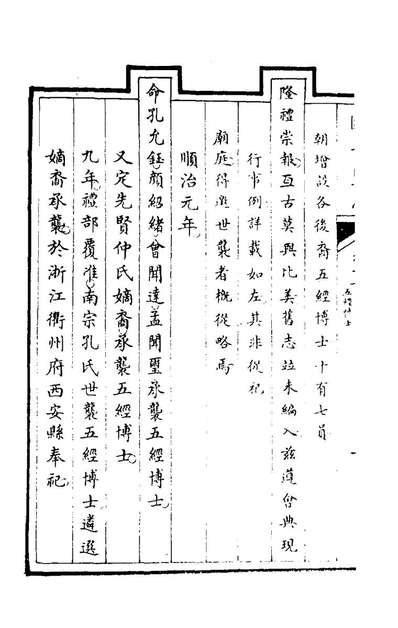 朝增設各後裔五經博士十有七員
隆禮崇報亙古莫與比美舊志竝未編入茲謹會典現
行事例詳載如左其非從祀
廟庭得選世襲者概從略焉
順治元年
命孔允鈺顏紹緒曾聞達孟聞璽承襲五經博士
又定先賢仲氏嫡裔承襲五經博士
九年禮部覆准南宗孔氏世襲五經博士遴選
嫡裔承襲於浙江衢州府西安縣奉祀
五經博士